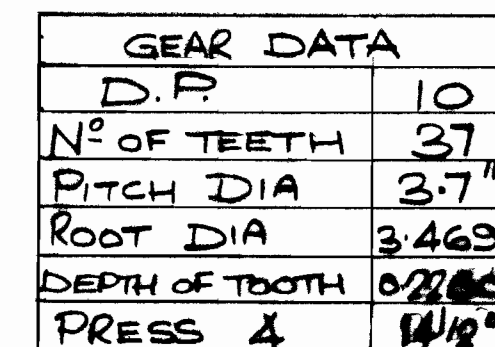 GEAR DATA
D.P. 10
Nº OF TEETH 37
PITCH DIA 3.7"
ROOT DIA 3.469
DEPTH OF TOOTH
PRESS ∡